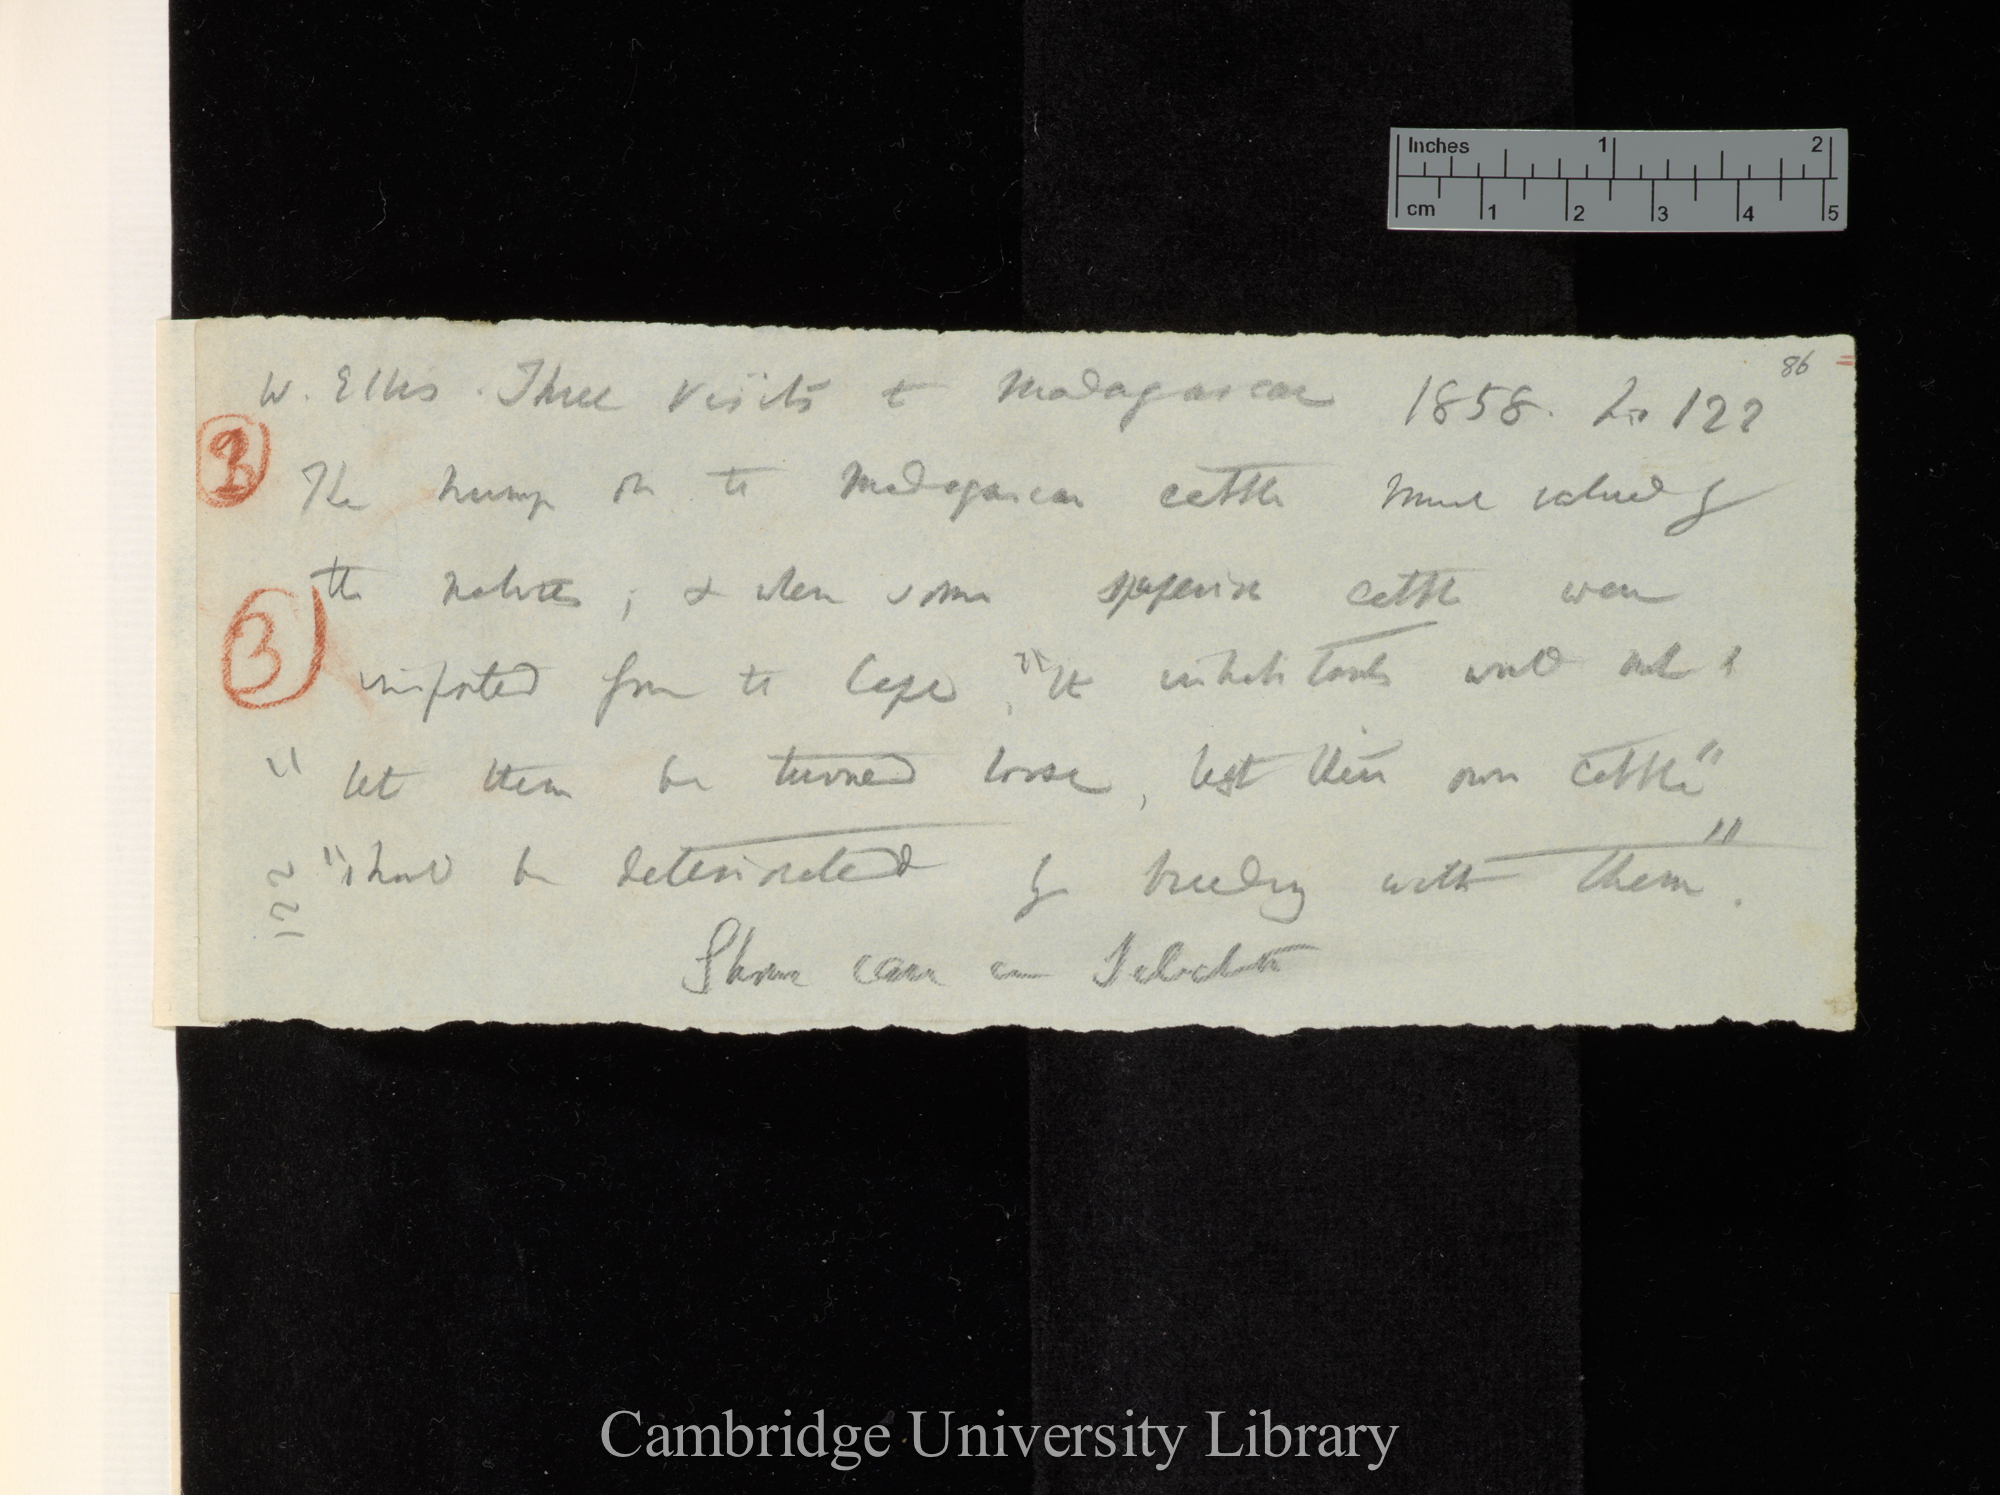 Inches 1 2
cm 1 2 3 4 5
86
W. Ellis. Three Visits to Madagascar 1858. p 122
The hump on the Madagascar cattle much valued by
3
the natives; & when some superior cattle were
3
imported from the Cape, "the inhabitants would not
" let them be turned loose, lest their own cattle"
"should be deteriorated by breeding with them".
122
Shows care in Selection
Cambridge University Library